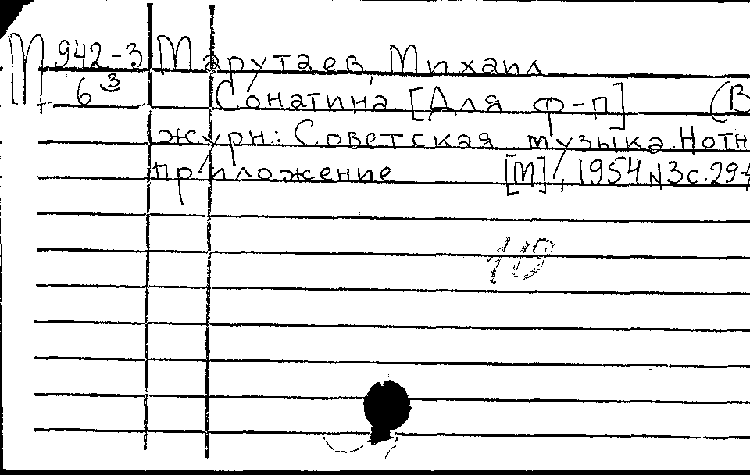 М 942-3 Марутаев, Михаил
6³ Сонатина [Для ф-п] (В
журн: Советская музыка. Нотн
приложение [М], 1954 N3 с. 29-